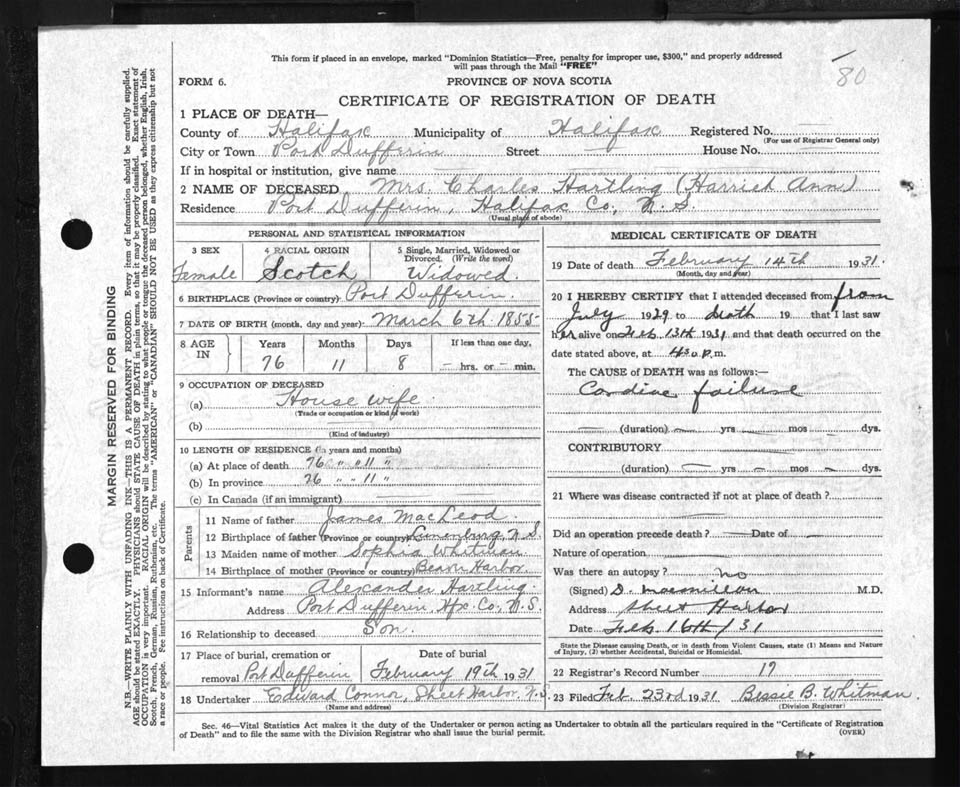 This form if placed in an envelope, marked "Dominion Statistics—Free, penalty for improper use, $300," and properly addressed
will pass through the Mail "FREE"
80
FORM 6. PROVINCE OF NOVA SCOTIA
CERTIFICATE OF REGISTRATION OF DEATH
1 PLACE OF DEATH—
County of Halifax Municipality of Halifax Registered No.
(For use of Registrar General only)
City or Town Port Dufferin Street House No.
If in hospital or institution, give name
2 NAME OF DECEASED Mrs. Charles Hartling (Harriet Ann)
Residence Port Dufferin, Halifax Co., N. S.
(Usual place of abode)
PERSONAL AND STATISTICAL INFORMATION
3 SEX 4 RACIAL ORIGIN 5 Single, Married, Widowed or
Divorced. (Write the word)
Female Scotch Widowed.
6 BIRTHPLACE (Province or country) Port Dufferin.
7 DATE OF BIRTH (month, day and year) March 6th 1855
8 AGE IN Years Months Days If less than one day,
76 11 8 — hrs. or — min.
9 OCCUPATION OF DECEASED
(a) House wife.
(Trade or occupation or kind of work)
(b)
(Kind of industry)
10 LENGTH OF RESIDENCE (in years and months)
(a) At place of death 76 " " 11 "
(b) In province 76 " " 11 "
(c) In Canada (if an immigrant)
Parents
11 Name of father James MacLeod
12 Birthplace of father (Province or country) Lunenburg N S
13 Maiden name of mother Sophia Whitman
14 Birthplace of mother (Province or country) Beaver Harbor
15 Informant's name Alexander Hartling.
Address Port Dufferin, Hfx. Co., N. S.
16 Relationship to deceased Son.
17 Place of burial, cremation or removal Port Dufferin Date of burial February 19th 1931
18 Undertaker Edward Connor, Sheet Harbor, N. S.
(Name and address)
MEDICAL CERTIFICATE OF DEATH
19 Date of death February 14th 1931.
(Month, day and year)
20 I HEREBY CERTIFY that I attended deceased from from
July 1929 to death 19 that I last saw
her alive on Feb 13th 1931 and that death occurred on
date stated above, at 4 30 p.m.
The CAUSE of DEATH was as follows:—
Cardiac failure
(duration) yrs mos dys.
CONTRIBUTORY
(duration) yrs mos dys.
21 Where was disease contracted if not at place of death ?
Did an operation precede death ? Date of
Nature of operation
Was there an autopsy ? no
(Signed) D. Macmillan M.D.
Address Sheet Harbor
Date Feb 16th / 31
State the Disease causing Death, or in death from Violent Causes, state (1) Means and Nature
of Injury, (2) whether Accidental, Suicidal or Homicidal.
22 Registrar's Record Number 17
23 Filed Feb. 23rd 1931 Bessie B. Whitman.
(Division Registrar)
Sec. 46—Vital Statistics Act makes it the duty of the Undertaker or person acting as Undertaker to obtain all the particulars required in the "Certificate of Registration
of Death" and to file the same with the Division Registrar who shall issue the burial permit.
(OVER)
MARGIN RESERVED FOR BINDING
N.B.—WRITE PLAINLY WITH UNFADING INK—THIS IS A PERMANENT RECORD. Every item of information should be carefully supplied.
AGE should be stated EXACTLY. PHYSICIANS should STATE CAUSE OF DEATH in plain terms, so that it may be properly classified. Exact statement of
OCCUPATION is very important. RACIAL ORIGIN will be described by stating to what people or tongue the deceased person belonged, whether English, Irish,
Scotch, French, German, Russian, Ruthenian, etc. The terms "AMERICAN" or "CANADIAN" SHOULD NOT BE USED as they express citizenship but not
a race or people. Fee instructions on back of Certificate.